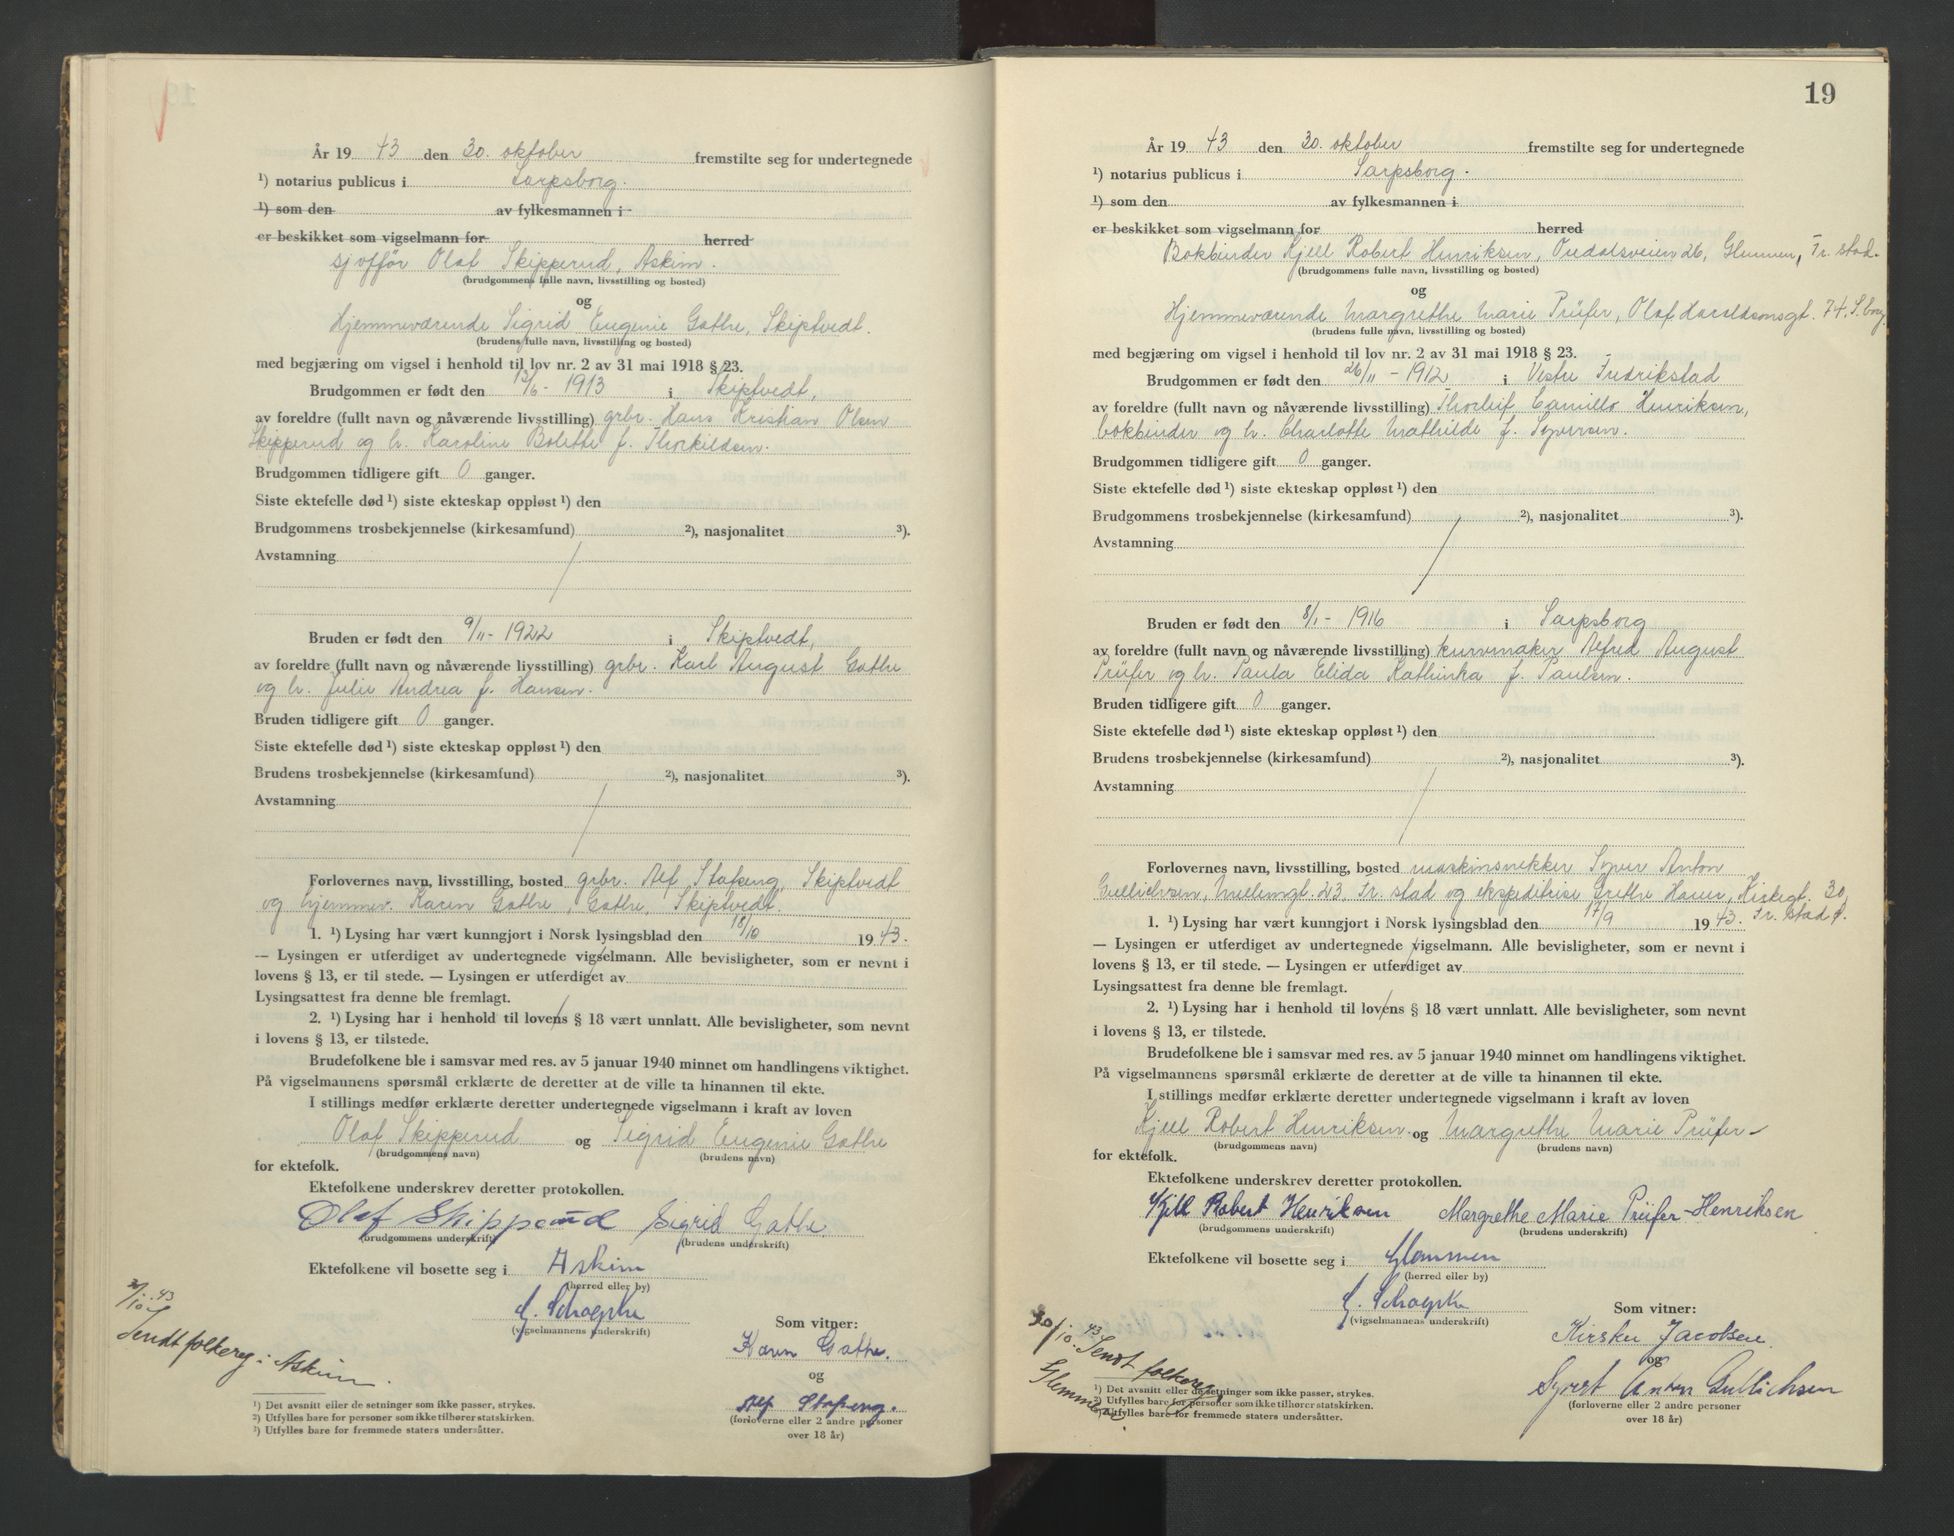 År 19 43 den 30. oktober fremstilte seg for undertegnede
¹) notarius publicus i Sarpsborg.
¹) som den av fylkesmannen i
er beskikket som vigselmann for herred
sjofför Olaf Skipperud, Askim.
(brudgommens fulle navn, livsstilling og bosted)
og
Hjemmeværende Sigrid Eugenie Gathe, Skiptvedt.
(brudens fulle navn, livsstilling og bosted)
med begjæring om vigsel i henhold til lov nr. 2 av 31 mai 1918 § 23.
Brudgommen er født den 13/6 - 1913 i Skiptvedt,
av foreldre (fullt navn og nåværende livsstilling) grbr. Hans Kristian Olsen
Skipperud og h. Karoline Bolette f. Thorkildsen.
Brudgommen tidligere gift 0 ganger.
Siste ektefelle død ¹) siste ekteskap oppløst ¹) den
Brudgommens trosbekjennelse (kirkesamfund) ²), nasjonalitet ³).
Avstamning
Bruden er født den 9/11 - 1922 i Skiptvedt,
av foreldre (fullt navn og nåværende livsstilling) grbr. Karl August Gathe
og h. Julie Andrea f. Hansen.
Bruden tidligere gift 0 ganger.
Siste ektefelle død ¹) siste ekteskap oppløst ¹) den
Brudens trosbekjennelse (kirkesamfund) ²), nasjonalitet ³).
Avstamning
Forlovernes navn, livsstilling, bosted grbr. Alf Stapeng, Skiptvedt
og hjemmev. Karen Gathe, Gathe, Skiptvedt.
1. ¹) Lysing har vært kunngjort i Norsk lysingsblad den 18/10 1943.
— Lysingen er utferdiget av undertegnede vigselmann. Alle bevisligheter, som er nevnt i
lovens § 13, er til stede. — Lysingen er utferdiget av
Lysingsattest fra denne ble fremlagt.
2. ¹) Lysing har i henhold til lovens § 18 vært unnlatt. Alle bevisligheter, som nevnt
i lovens § 13, er tilstede.
Brudefolkene ble i samsvar med res. av 5 januar 1940 minnet om handlingens viktighet.
På vigselmannens spørsmål erklærte de deretter at de ville ta hinannen til ekte.
I stillings medfør erklærte deretter undertegnede vigselmann i kraft av loven
Olaf Skipperud og Sigrid Eugenie Gathe
(brudgommens navn) (brudens navn)
for ektefolk.
Ektefolkene underskrev deretter protokollen.
Olaf Skipperud Sigrid Gathe.
(brudgommens underskrift) (brudens underskrift)
Ektefolkene vil bosette seg i Askim
(herred eller by)
(vigselmannens underskrift)
Som vitner:
Karen Gathe.
og
Alf Stapeng.
(forloverne eller 2 andre personer
over 18 år)
/10.43
Sendt folkereg. i Askim.
¹) Det avsnitt eller de setninger som ikke passer, strykes.
²) Utfylles bare for personer som ikke tilhører statskirken.
³) Utfylles bare for fremmede staters undersåtter.
19
År 19 43 den 30. oktober fremstilte seg for undertegnede
¹) notarius publicus i Sarpsborg.
¹) som den av fylkesmannen i
er beskikket som vigselmann for herred
Bokbinder Kjell Robert Henriksen, 26, Glemmen, Fr.stad.
(brudgommens fulle navn, livsstilling og bosted)
og
Hjemmeværende Margrethe Marie Prüfer, Olaf Haraldsonsgt. 74, S.borg
(brudens fulle navn, livsstilling og bosted)
med begjæring om vigsel i henhold til lov nr. 2 av 31 mai 1918 § 23.
Brudgommen er født den 26/11 - 1912 i Vestre Fredrikstad
av foreldre (fullt navn og nåværende livsstilling) Thorleif Camillo Henriksen,
bokbinder og h. Charlotte Mathilde f. Syversen.
Brudgommen tidligere gift 0 ganger.
Siste ektefelle død ¹) siste ekteskap oppløst ¹) den
Brudgommens trosbekjennelse (kirkesamfund) ²), nasjonalitet ³).
Avstamning
Bruden er født den 8/1 - 1916 i Sarpsborg
av foreldre (fullt navn og nåværende livsstilling) kurvmaker Alfred August
Prüfer og h. Paula Elida Kathinka f. Paulsen.
Bruden tidligere gift 0 ganger.
Siste ektefelle død ¹) siste ekteskap oppløst ¹) den
Brudens trosbekjennelse (kirkesamfund) ²), nasjonalitet ³).
Avstamning
Forlovernes navn, livsstilling, bosted maskinsnekker Syver Anton
Gullichsen, 23 Fr.stad og ekspeditrise Grethe 30,
Fr.stad
1. ¹) Lysing har vært kunngjort i Norsk lysingsblad den 17/9 1943.
— Lysingen er utferdiget av undertegnede vigselmann. Alle bevisligheter, som er nevnt i
lovens § 13, er til stede. — Lysingen er utferdiget av
Lysingsattest fra denne ble fremlagt.
2. ¹) Lysing har i henhold til lovens § 18 vært unnlatt. Alle bevisligheter, som nevnt
i lovens § 13, er tilstede.
Brudefolkene ble i samsvar med res. av 5 januar 1940 minnet om handlingens viktighet.
På vigselmannens spørsmål erklærte de deretter at de ville ta hinannen til ekte.
I stillings medfør erklærte deretter undertegnede vigselmann i kraft av loven
Kjell Robert Henriksen og Margrethe Marie Prüfer
(brudgommens navn) (brudens navn)
for ektefolk.
Ektefolkene underskrev deretter protokollen.
Kjell Robert Henriksen Margrethe Marie Prüfer-Henriksen
(brudgommens underskrift) (brudens underskrift)
Ektefolkene vil bosette seg i Glemmen
(herred eller by)
(vigselmannens underskrift)
Som vitner:
Kirsten Jacobsen
og
Syvert Anton Gullichsen
(forloverne eller 2 andre personer
over 18 år)
30/10.43 Sendt folkereg.
Glemmen.
¹) Det avsnitt eller de setninger som ikke passer, strykes.
²) Utfylles bare for personer som ikke tilhører statskirken.
³) Utfylles bare for fremmede staters undersåtter.